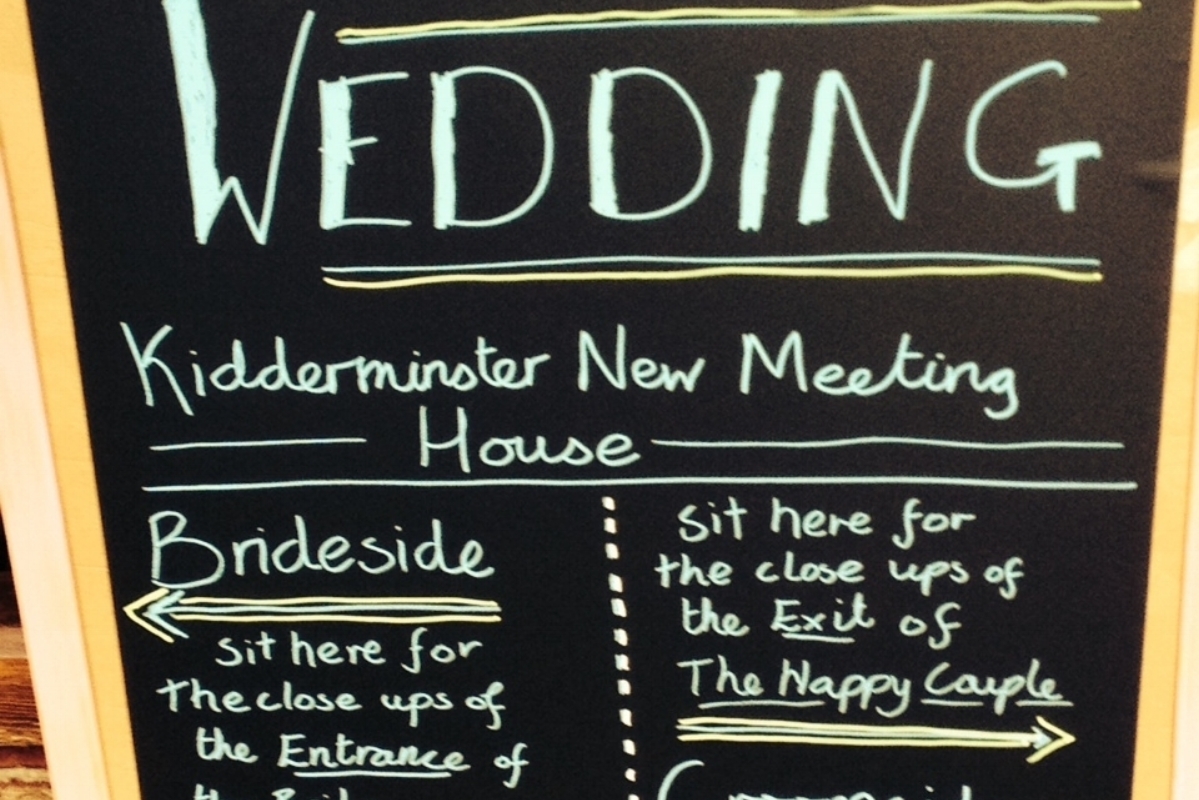 WEDDING
Kidderminster New Meeting
House
Brideside
sit here for
the close ups of
the Entrance of
the
sit here for
the close ups of
the Exit of
The Happy Couple